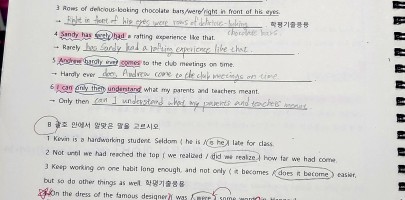 3 Rows of delicious-looking chocolate bars/were/right in front of his eyes.
→ Right in front of his eyes were rows of delicious-looking 학평기출응용
chocolate bars.
4 Sandy has rarely had a rafting experience like that.
→ Rarely has Sandy had a rafting experience like that
5 Andrew hardly ever comes to the club meetings on time.
→ Hardly ever does Andrew come to the club meetings on time
6 I can only then understand what my parents and teachers meant.
→ Only then can I understand what my parents and teachers meant
B 괄호 안에서 알맞은 말을 고르시오.
1 Kevin is a hardworking student. Seldom ( he is / is he ) late for class.
2 Not until we had reached the top ( we realized / did we realize ) how far we had come.
3 Keep working on one habit long enough, and not only ( it becomes / does it become ) easier,
but so do other things as well. 학평기출응용
On the dress of the famous designer ( was / were ) some